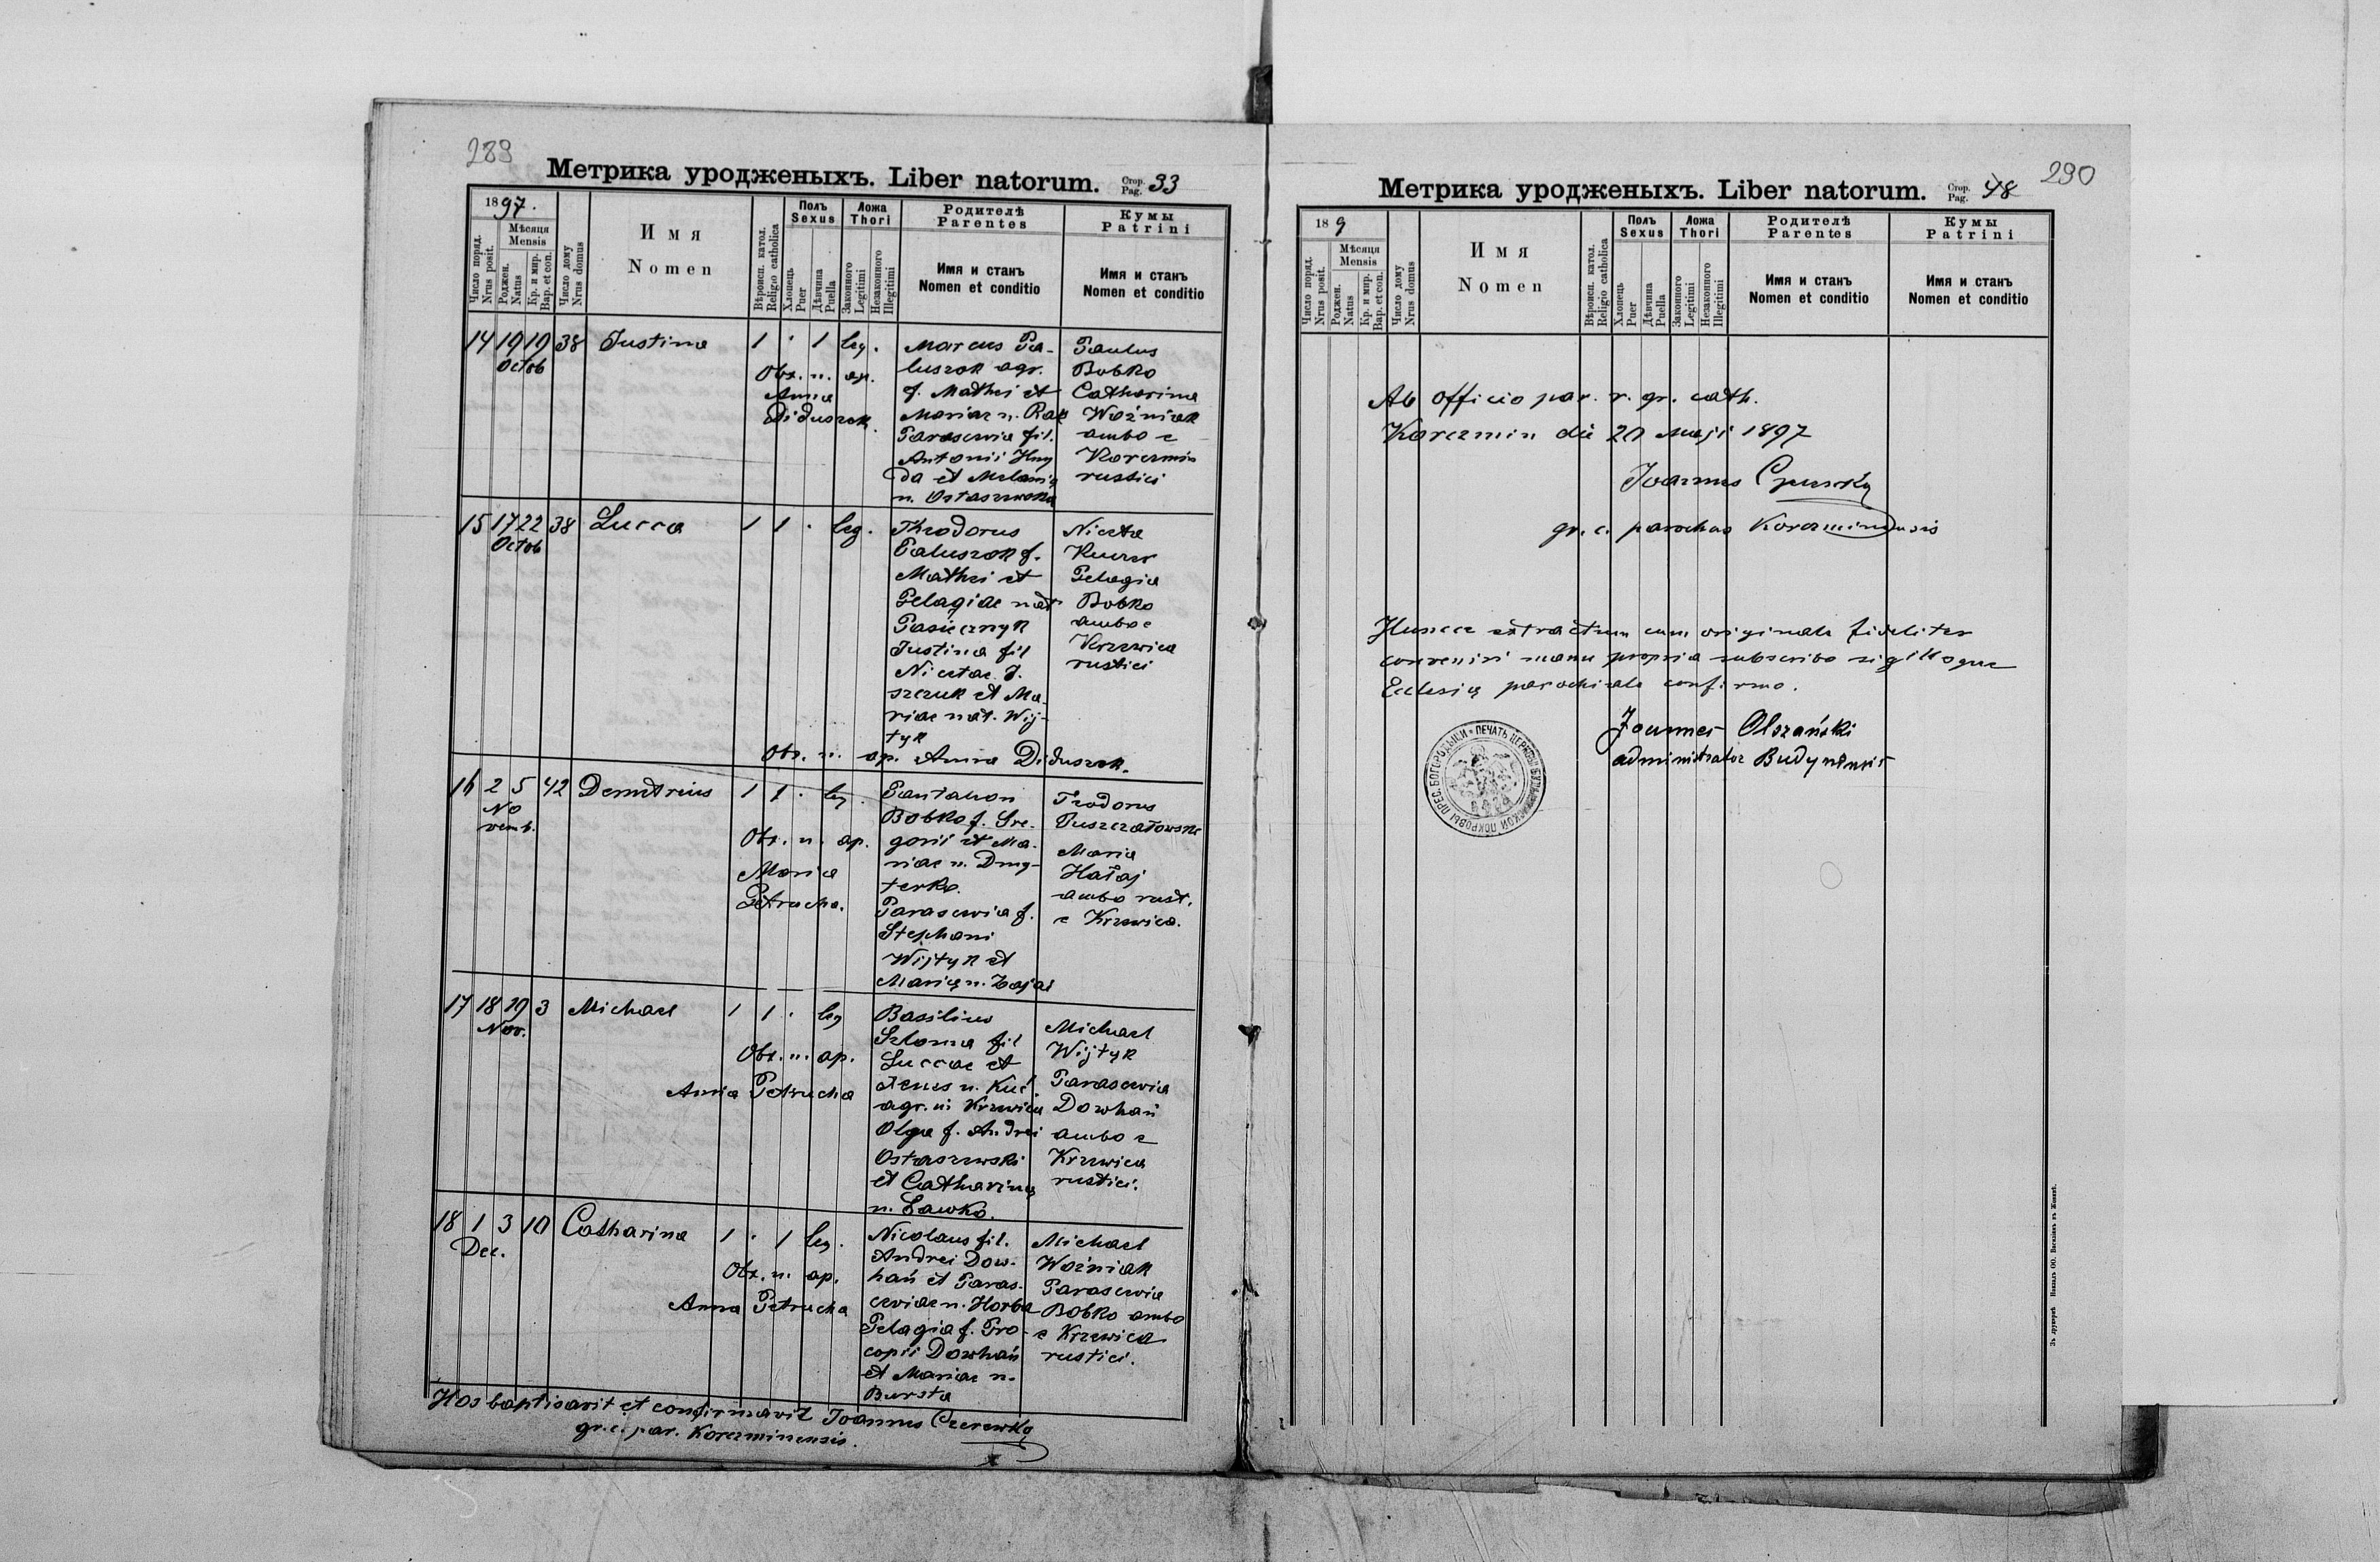 289
Метрика уродженыхъ. Liber natorum. Стор. Pag. 33
1897.
Число поряд. Nrus posit.
Мѣсяця Mensis
Рожден. Natus
Кр. и мир. Bap. et con.
Число дому Nrus domus
Имя
Nomen
Вѣроисп. катол. Religio catholica
Полъ Sexus
Хлопець Puer
Дѣвчина Puella
Ложа Thori
Законного Legitimi
Незаконного Illegitimi
Родителѣ Parentes
Имя и станъ
Nomen et conditio
Кумы Patrini
Имя и станъ
Nomen et conditio
14 19 19 38 Justina 1 · 1 leg.
Octob
Obs. n. ap.
Anna
Diduszok.
Marcus Pa-
luszok agr.
f. Mathei et
Mariae n. Rak
Parascevia fil.
Antonii Hny
da et Melanię
n. Ostaszewska
Paulus
Bobko
Catharina
Woźniak
ambo e
Korczmin
rustici
15 17 22 38 Lucca 1 1 · leg.
Octob
Theodorus
Paluszok f.
Mathei et
Pelagiae nat
Pasiecznyk
Justina fil
Nicetae J.
szczuk et Ma
riae nat. Wij-
tyk
Niceta
Kuczer
Pelagia
Bobko
ambo e
Krzewica
rustici
Obs. n. ap. Anna Diduszok.
16 2 5 42 Demetrius 1 1 · leg.
No
vemb.
Obs. n. ap.
Maria
Petrucha.
Pantaleon
Bobko f. Gre-
gorii et Ma-
riae n. Dmy-
terko.
Parascevia f.
Stephani
Wijtyk et
Marię n. Zająć
Teodorus
Puszczałowski
Maria
Hałaj
ambo rust.
e Krzewica.
17 18 19 3 Michael 1 1 · leg
Nov.
Obs. n. ap.
Anna Petrucha
Basilius
Szloma fil
Luccae et
agr. in Krzewica
Olga f. Andrei
Ostaszewski
et Catharinę
n. Sawko.
Michael
Wijtyk
Parascevia
Dowhań
ambo e
Krzewica
rustici.
18 1 3 10 Catharina 1 · 1 leg.
Dec.
Obs. n. ap.
Anna Petrucha
Nicolaus fil.
Andrei Dow-
hań et Paras-
ceviae n. Horba
Pelagia f. Pro-
copii Dowhań
et Mariae n.
Bursta
Michael
Woźniak
Parascevia
Bobko ambo
e Krzewica
rustici.
Hos baptisavit et confirmavit Joannes Czerewką
gr. c. par. Korczminensis.
290
Метрика уродженыхъ. Liber natorum. Стор. Pag. 48
189
Число поряд. Nrus posit.
Мѣсяця Mensis
Рожден. Natus
Кр. и мир. Bap. et con.
Число дому Nrus domus
Имя
Nomen
Вѣроисп. катол. Religio catholica
Полъ Sexus
Хлопець Puer
Дѣвчина Puella
Ложа Thori
Законного Legitimi
Незаконного Illegitimi
Родителѣ Parentes
Имя и станъ
Nomen et conditio
Кумы Patrini
Имя и станъ
Nomen et conditio
Ab officio par. r. gr. cath.
Korczmin die 20 Maji 1897
Joannes
gr. c. parochus Korczminensis
Huncce extractum cum originale fideliter
conveniri manu propria subscribo sigilloque
Ecclesię parochiale confirmo.
Joannes Olszański
administrator Budynensis
ПЕЧАТЬ ЦЕРКВИ ПОКРОВЫ ПРЕС. БОГОРОДЫЦИ